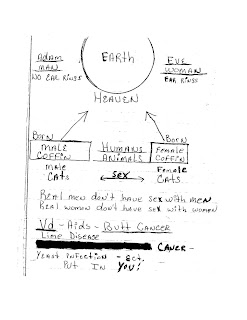 EARTH
Adam
MAN
NO EAR RINGS
EVE
WOMAN
EAR RINGS
HEAVEN
BORN
BORN
MALE
COFFIN
HUMANS
ANIMALS
Female
COFFIN
male
CATS
SEX
Female
CATS
Real men don't have sex with men
Real women don't have sex with women
Vd - Aids - Butt CANCER
Lime Disease
CANCER -
YEAST INFECTION - ECT.
PUT IN YOU!